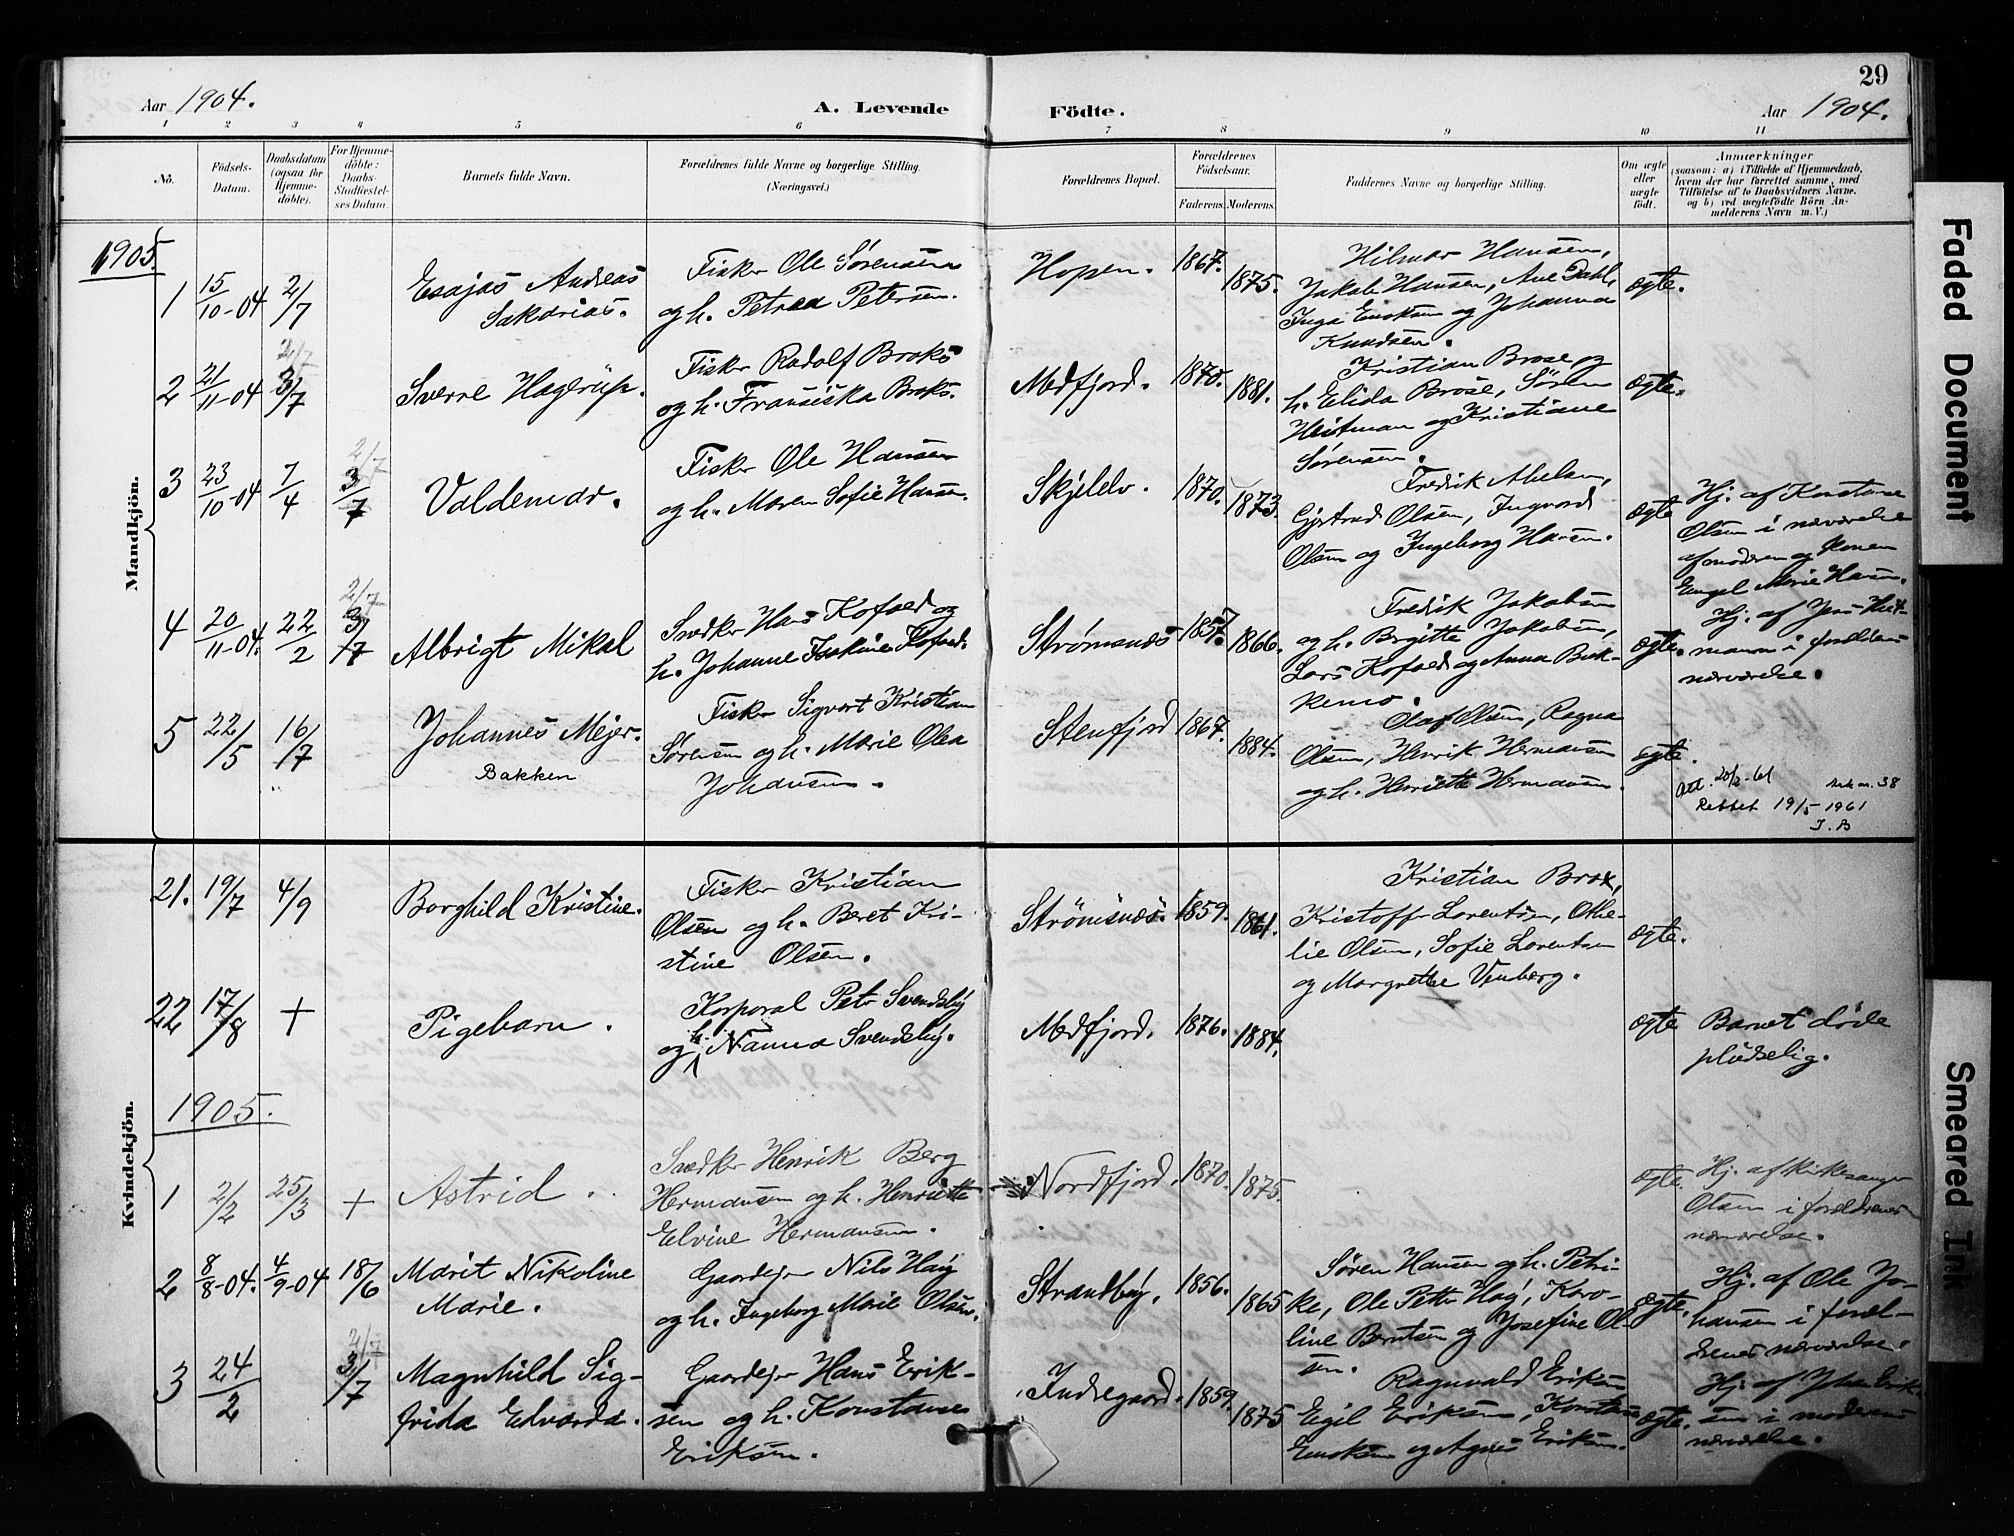 29
Aar 1904.
A. Levende
Födte.
Aar 1904.
1 2 3 4 5 6 7 8 9 10 11
No.
Födsels-
Datum.
Daabsdatum
(ogsaa for
Hjemme-
döbte).
For Hjemme-
döbte:
Daabs-
Stadfæstel-
ses Datum.
Barnets fulde Navn.
Forældrenes fulde Navne og borgerlige Stilling.
(Næringsvei.)
Forældrenes Bopæl.
Forældrenes
Födselsaar.
Faderens.
Moderens.
Faddernes Navne og borgerlige Stilling.
Om ægte
eller
uægte
født.
Anmærkninger
(saasom: a) i Tilfælde af Hjemmedaab,
hvem der har forrettet samme, med
Tilföielse af to Daabsvidners Navne.
og b) ved uægtefödte Börn An-
melderens Navn m.V.)
Mandkjön.
1905.
1
15/10-04
2/7
Esajas Andreas
Sakarias.
Fisker Ole Sørensen
og h. Petrea Petersen.
Hopen.
1867.
1875.
Hilmar Hansen,
Jakob Hansen, Ane Dahl,
Inga Enoksen og Johanna
Knudsen.
ægte.
2
21/11-04
2/7
3/7
Sverre Hagerup.
Fisker Radolf Broks
og h. Fransiska Broks.
Medfjord.
1870.
1881.
Kristian Brose og
h. Elida Brose, Sören
Heitman og Kristiane
Sørensen.
ægte.
3
23/10-04
7/4
2/7
3/7
Valdemar.
Fisker Ole Hansen
og h. Maren Sofie Hansen.
Skjelelv.
1870.
1873.
Fredrik Abelsen,
Gjertrud Olsen, Ingvard
Olsen og Ingeborg Hansen.
ægte
Hj. af Konstanse
Olsen i nærværelse
af moderen og konen
Engel Marie Hansen.
4
20/11-04.
22/2
2/7
3/7
Albrigt Mikal
Snedker Hans Kofoed og
h. Johanne Kofoed.
Strømsnæs
1857.
1866.
Fredrik Jakobsen
og h. Birgitte Jakobsen,
Lars Kofoed og Anna
ægte.
Hj. af Jens Heit-
mann i forældres
nærværelse.
5
22/5
16/7
Johannes Mejer.
Bakken
Fisker Sigvart Kristian
Sørensen og h. Marie Olea
Johansen.
Stenfjord
1867.
1884.
Olaf Olsen, Ragna
Olsen, Henrik Hermansen
og h. Henriette Hermansen.
ægte.
Att. 20/2-61
38
Rettet 19/5-1961
J.B
Kvindekjön.
21.
19/7
4/9
Borghild Kristine.
Fisker Kristian
Olsen og h. Beret Kri-
stine Olsen.
Strömsnæs.
1859.
1861.
Kristian Brox,
Kristoffer Lorentsen, Othe-
lie Olsen, Sofie Lorentsen
og Margrethe Venberg.
ægte.
22
17/8
+
Pigebarn.
Korporal Peter Svendsby
og h. Nanna Svendsby.
Medfjord.
1876.
1884.
ægte
Barnet døde
pludselig.
1905.
1
2/2
25/3
+
Astrid.
Snedker Henrik Berg
Hermansen og h. Henriette
Elvine Hermansen.
Nordfjord.
1870.
1875.
ægte.
Hj. af kirkesanger
Olsen i forældrenes
nærværelse.
2
8/8-04.
4/9-04
18/6
Marit Nikoline
Marie.
Gaardejer Nils Haig
og h. Ingeborg Marie Olsen.
Strandby.
1856.
1865
Søren Hansen og h. Petri-
ke, Ole Petter Hag, Karo-
line Berntsen og Josefine Ol-
sen.
ægte.
Hj. af Ole Jo-
hansen i foræl-
drenes nærværelse.
3
24/2
2/7
3/7
Magnhild Sig-
frida Edvarda.
Gaardejer Hans Erik-
sen og h. Konstanse
Eriksen.
Indregaard.
1859.
1875
Ragnvald Eriksen
Egil Eriksen, Konstanse
Enoksen og Agnes Eriksen.
ægte.
Hj. af Johan Erik-
sen i moderens
nærværelse.
Faded Document
Smeared Ink